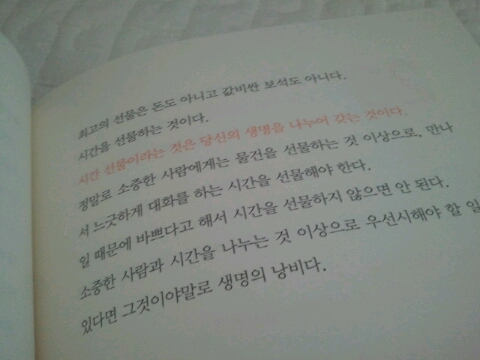 최고의 선물은 돈도 아니고 값비싼 보석도 아니다.
시간을 선물하는 것이다.
시간 선물이라는 것은 당신의 생명을 나누어 갖는 것이다.
정말로 소중한 사람에게는 물건을 선물하는 것 이상으로, 만나
서 느긋하게 대화를 하는 시간을 선물해야 한다.
일 때문에 바쁘다고 해서 시간을 선물하지 않으면 안 된다.
소중한 사람과 시간을 나누는 것 이상으로 우선시해야 할 일
있다면 그것이야말로 생명의 낭비다.